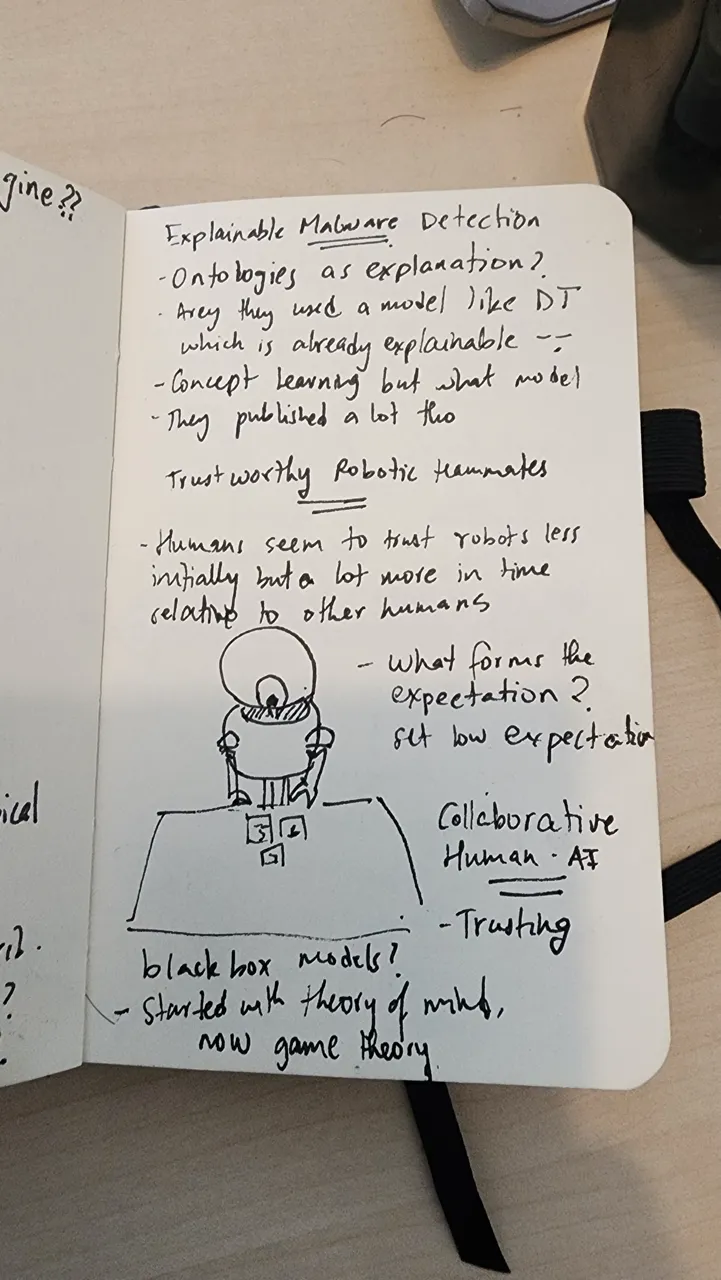 gine??
ical
?
Explainable Malware Detection
- Ontologies as explanation?
- Arey they used a model like DT
which is already explainable -_-
- Concept Learning but what model
- They published a lot tho
Trustworthy Robotic teammates
- Humans seem to trust robots less
initially but a lot more in time
relative to other humans
- What forms the
expectation?
set low expectation
Collaborative
Human - AI
- Trusting
black box models?
- Started with theory of mind,
now game theory.